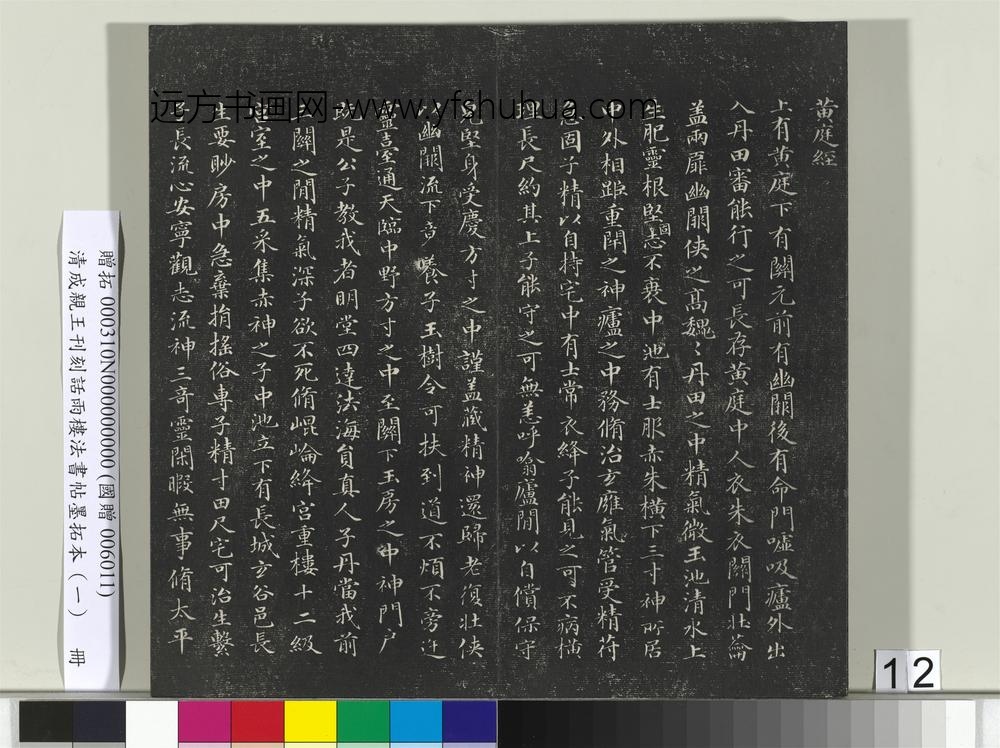 远方书画网-www.yfshuhua.com
黄庭經
上有黄庭下有關元前有幽闕後有命門嘘吸廬外出
入丹田審能行之可長存黄庭中人衣朱衣關門壯蘥
盖兩扉幽闕俠之高魏〻丹田之中精氣微玉池清水上
生肥靈根堅固志不衰中池有士服赤朱横下三寸神所居
中外相距重閉之神廬之中務脩治玄廱氣管受精符
急固子精以自持宅中有士常衣絳子能見之可不病横
理長尺約其上子能守之可無恙呼噏廬間以自償保守
完堅身受慶方寸之中謹盖藏精神還歸老復壯俠
以幽闕流下竟養子玉樹令可扶到道不煩不旁迕
靈臺通天臨中野方寸之中至關下玉房之中神門户
既是公子教我者明堂四達法海員真人子丹當我前
三關之間精氣深子欲不死脩崐崘絳宮重樓十二級
宮室之中五采集赤神之子中池立下有長城玄谷邑長
生要眇房中急棄捐搖俗專子精寸田尺宅可治生繫
子長流心安寧觀志流神三奇靈閑暇無事脩太平
贈拓 000310N000000000 (國贈 006011)
清成親王刊刻詒雨樓法書帖墨拓本 (一) 冊
12